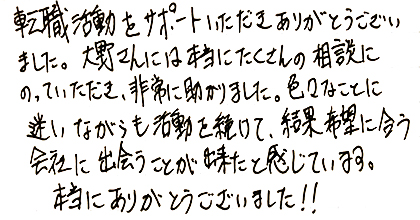 転職活動をサポートいただきありがとうござい
ました。大野さんには本当にたくさんの相談に
のっていただき、非常に助かりました。色々なことに
迷いながらも活動を続けて、結果希望に合う
会社に出会うことが出来たと感じています。
本当にありがとうございました!!